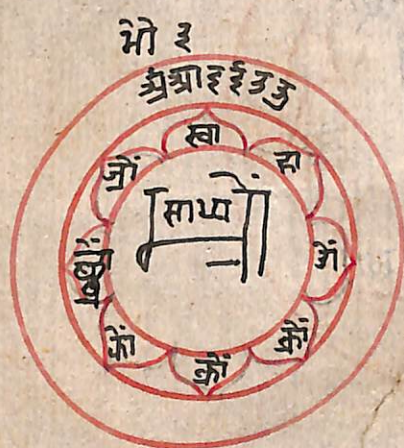 मो ३
अ आ इ ई उ ऊ
स्वा
हा
ओं
क्रों
क्रौं
क्रों
ज्रों
साध्य